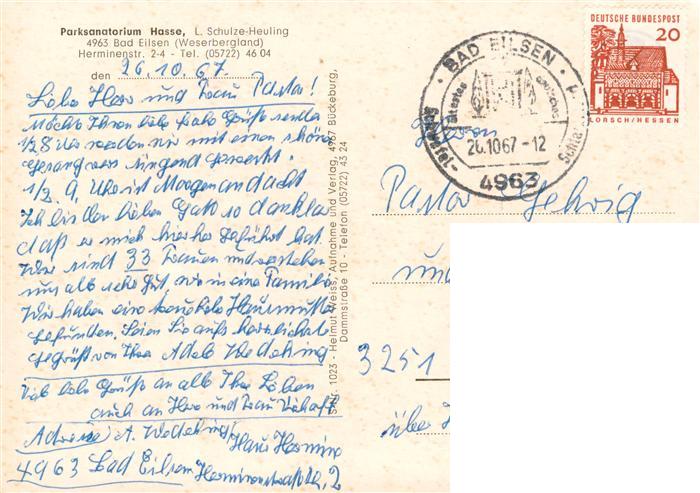 Parksanatorium Hasse, L. Schulze-Heuling
4963 Bad Eilsen (Weserbergland)
Herminenstr. 2-4 - Tel. (05722) 46 04
den 26.10.67.
Liebe Herr und Frau Pastor!
Möchte Ihnen liebe frohe Grüße senden
1/2 8 Uhr werden wir mit einen schönen
Gesangvers singend geweckt.
1/2 9 Uhr ist Morgenandacht
Ich bin den lieben Gott so dankbar
daß er mich hierher geführt hat.
Wir sind 33 Frauen und verstehen
uns alle sehr gut, wie in eine Familie
Wir haben eine Hausmutter
gefunden. Seien Sie aufs herzlichste
gegrüßt von Ihrer Adele Wedeking
Viele liebe Grüße an alle Ihre Lieben
auch an Herr und Frau
Adresse A. Wedeking Haus Hermine
4963 Bad Eilsen Herminenstraße 2
S.-Nr. 1023 - Helmut Weiss, Aufnahme und Verlag, 4967 Bückeburg,
Dammstraße 10 - Telefon (05722) 43 24
BAD EILSEN
Schwefel-
26.10.67-12
4963
DEUTSCHE BUNDESPOST
20
LORSCH/HESSEN
Herrn
Pastor Gehrig
und
3251
über